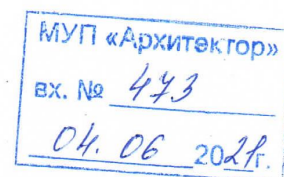 МУП «Архитектор»
вх. № 473
04. 06 2021г.